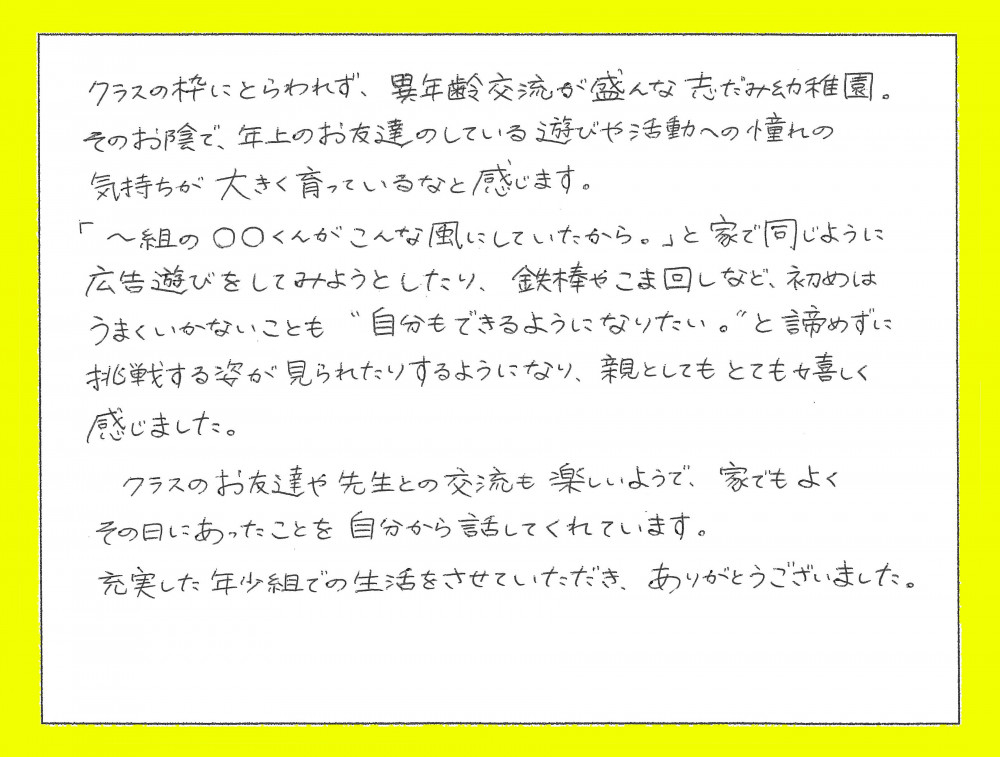 クラスの枠にとらわれず、異年齢交流が盛んな志だみ幼稚園。
そのお陰で、年上のお友達のしている遊びや活動への憧れの
気持ちが大きく育っているなと感じます。
「～組の〇〇くんがこんな風にしていたから。」と家で同じように
広告遊びをしてみようとしたり、鉄棒やこま回しなど、初めは
うまくいかないことも〝自分もできるようになりたい。〟と諦めずに
挑戦する姿が見られたりするようになり、親としてもとても嬉しく
感じました。
クラスのお友達や先生との交流も楽しいようで、家でもよく
その日にあったことを自分から話してくれています。
充実した年少組での生活をさせていただき、ありがとうございました。